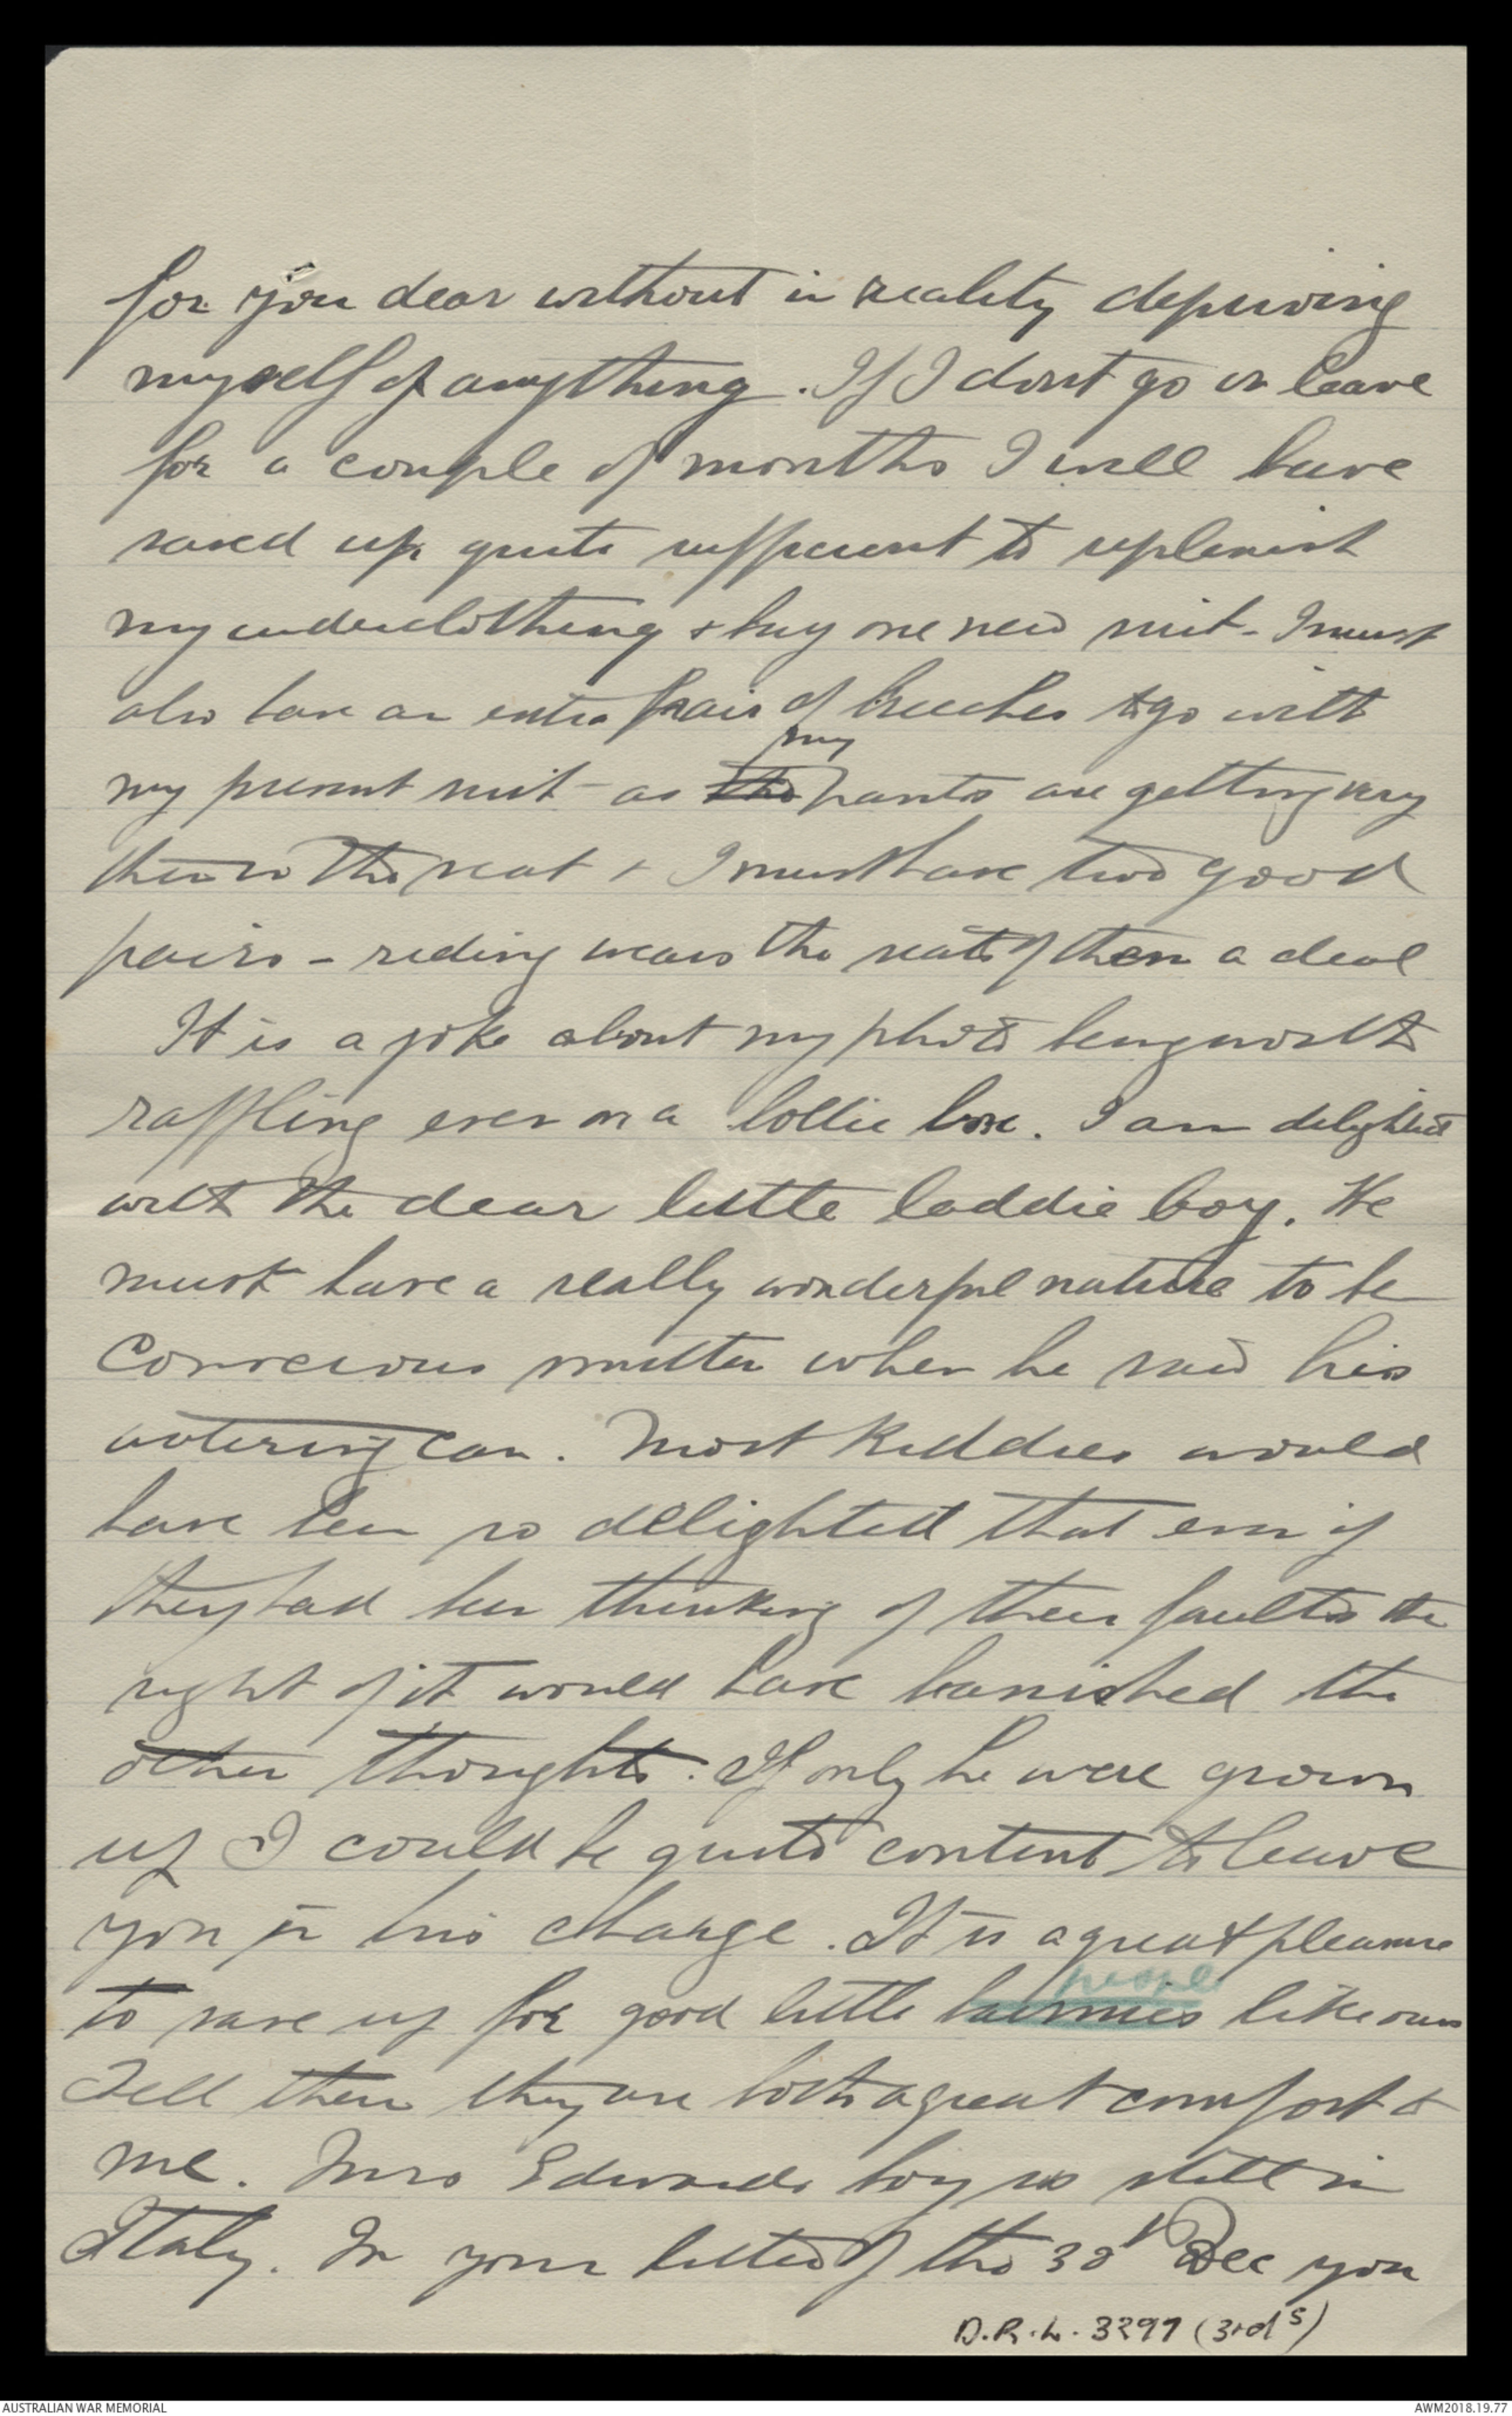 for you dear without in reality depriving
myself of anything. If I dont go on leave
for a couple of months I will have
saved up quite sufficient to replenish
my underclothing & buy one new suit - I must
also have an extra pair of breeches to go with
my
my present suit - as the pants are getting very
thin in the seat & I must have two good
pairs - riding wears the seats of them a deal
It is a joke about my photo being worth
raffling even on a lollie box. I am delighted
with the dear little laddie boy. He
must have a really wonderful nature to be
conscious smitten when he saw his
watering can. Most kiddies would
have been so delighted that even if
they had been thinking of their faults the
sight of it would have banished the
other thoughts. If only he were grown
up I could be quite content to leave
you in his charge. It is a great pleasure
people
to save up for good little bairnies like ours
Tell them they are both a great comfort to
me. Mrs Edwards boy is still in
Italy. In your letter of the 30th Dec you
D.R.L. 3297 (3rd s)
AUSTRALIAN WAR MEMORIAL
AWM2018.19.77